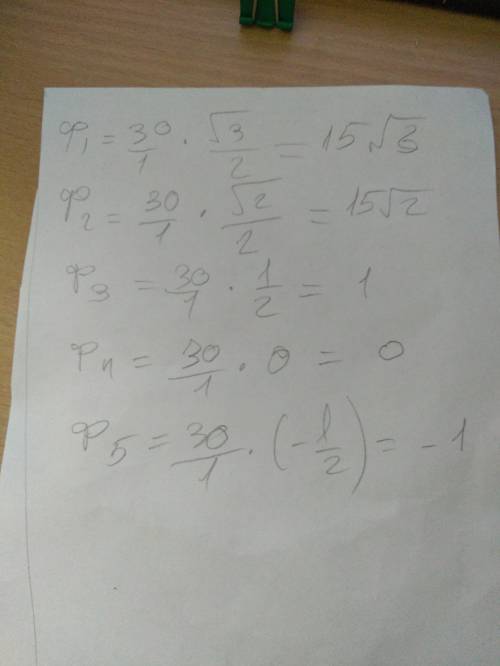 φ₁ = 30/1 · √3/2 = 15√3
φ₂ = 30/1 · √2/2 = 15√2
φ₃ = 30/1 · 1/2 = 1
φ₄ = 30/1 · 0 = 0
φ₅ = 30/1 · (-1/2) = -1